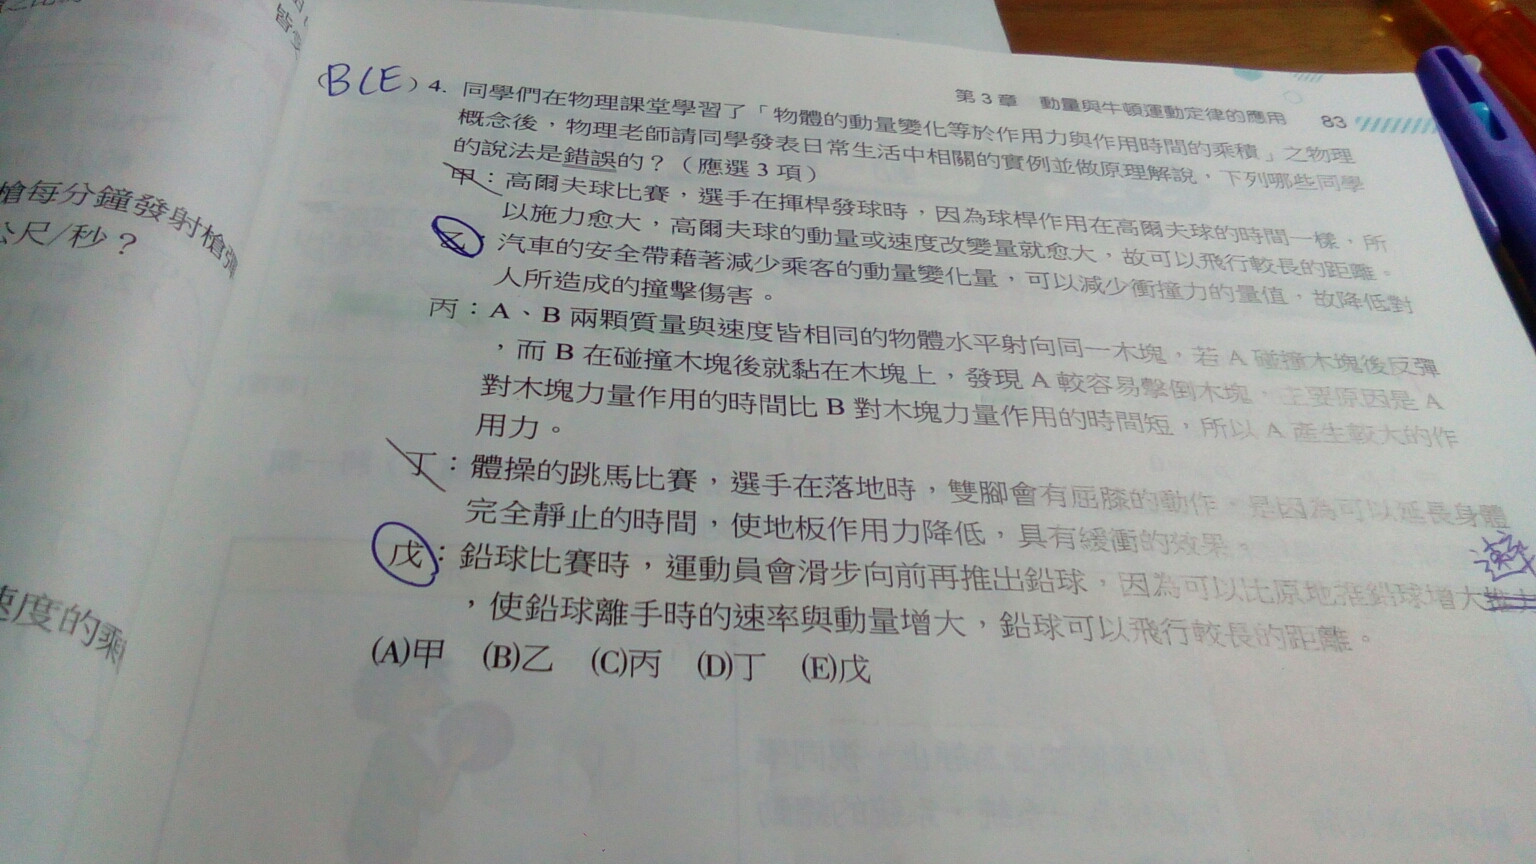 第 3 章 動量與牛頓運動定律的應用 83
(BCE) 4. 同學們在物理課堂學習了「物體的動量變化等於作用力與作用時間的乘積」之物理
概念後，物理老師請同學發表日常生活中相關的實例並做原理解說，下列哪些同學
的說法是錯誤的？（應選 3 項）
甲：高爾夫球比賽，選手在揮桿發球時，因為球桿作用在高爾夫球的時間一樣，所
以施力愈大，高爾夫球的動量或速度改變量就愈大，故可以飛行較長的距離。
乙：汽車的安全帶藉著減少乘客的動量變化量，可以減少衝撞力的量值，故降低對
人所造成的撞擊傷害。
丙：A、B 兩顆質量與速度皆相同的物體水平射向同一木塊，若 A 碰撞木塊後反彈
，而 B 在碰撞木塊後就黏在木塊上，發現 A 較容易擊倒木塊，主要原因是 A
對木塊力量作用的時間比 B 對木塊力量作用的時間短，所以 A 產生較大的作
用力。
丁：體操的跳馬比賽，選手在落地時，雙腳會有屈膝的動作，是因為可以延長身體
完全靜止的時間，使地板作用力降低，具有緩衝的效果。
戊：鉛球比賽時，運動員會滑步向前再推出鉛球，因為可以比原地推鉛球增大
，使鉛球離手時的速率與動量增大，鉛球可以飛行較長的距離。
(A)甲 (B)乙 (C)丙 (D)丁 (E)戊
槍每分鐘發射槍彈
公尺/秒？
速度的乘